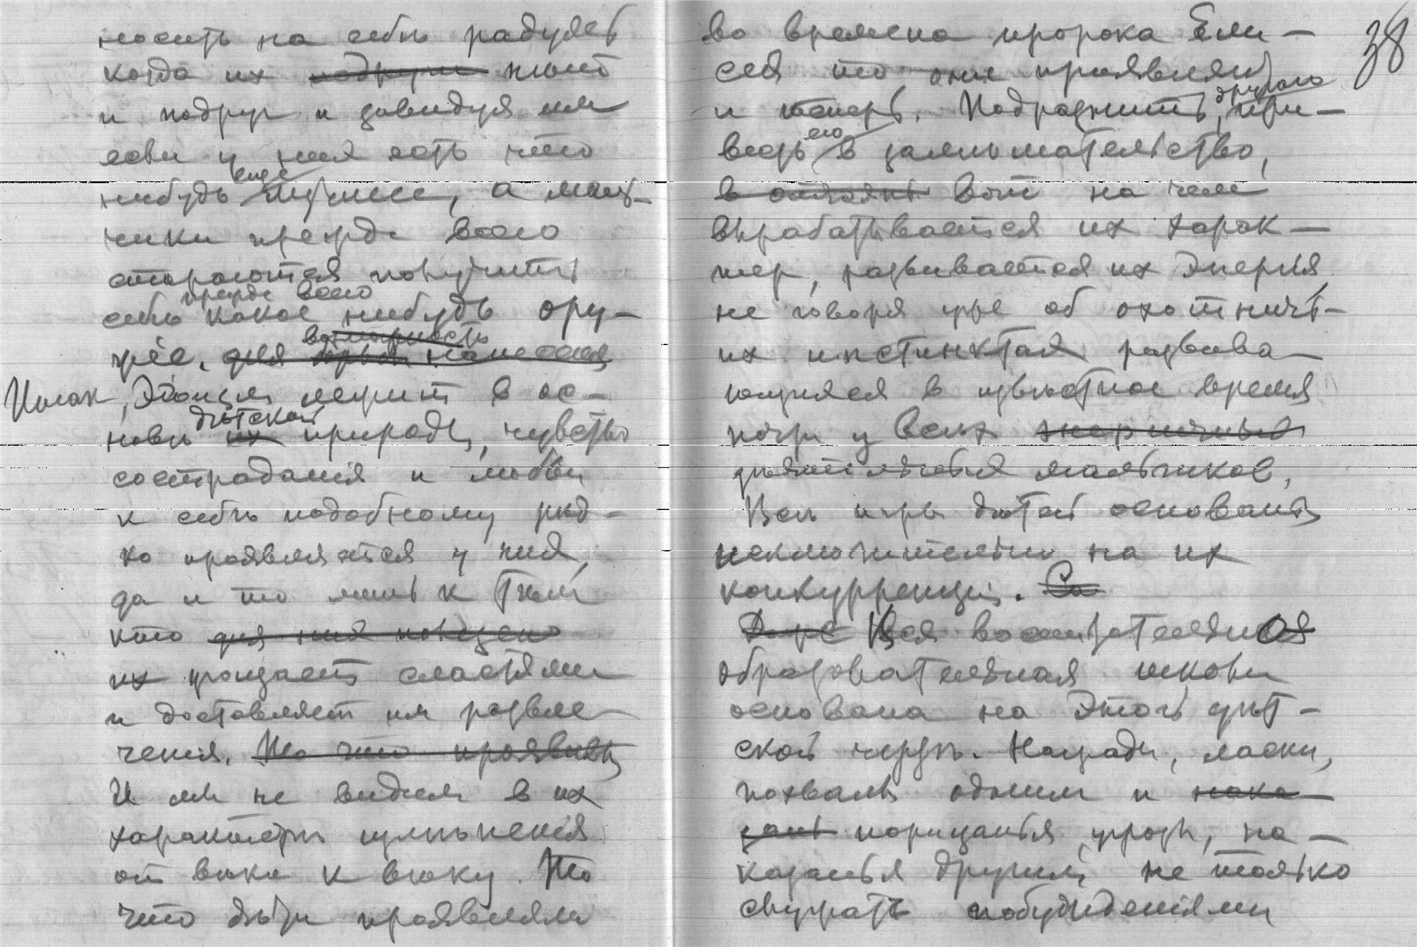 носить на себѣ радуясь
когда их подруги нѣтъ
и подруг и завидуя им
если у них есть что
нибудь еще лучшее, а маль-
чики прежде всего
стараются получить
прежде всего
себѣ какое нибудь ору-
жіе, для нанесенія
Итак, Эгоизм лежит в ос-
новѣ их дѣтской природы, чувство
состраданія и любви
к себѣ подобному рѣд-
ко проявляется у них,
да и то лишь к тѣм
кто для них полезно
их угощает сластями
и доставляет им развле-
ченія. Но что проявить
И мы не видим в их
характерѣ измѣненія
от вѣка к вѣку. То
что дѣти проявляли
38
во времена пророка Ели-
сея то они проявляют
и теперь. Подразнить другого, при-
весть его в замѣшательство,
в вот на чем
вырабатывается их харак-
тер, развивается их Энергія,
не говоря уже об охотничь-
их инстинктах развива-
ющихся в извѣстное время
почти у всѣх энергичных
дѣятельных мальчиков.
Всѣ игры дѣтей основаны
исключительно на их
конкурренціи. Са
Даже Вся воспитательная
образовательная школа
основана на Этой дѣт-
ской чертѣ. Награды, ласки,
похвалы одним и нака-
занья порицанья, угрозы, на-
казанья другим не только
служать побужденіями